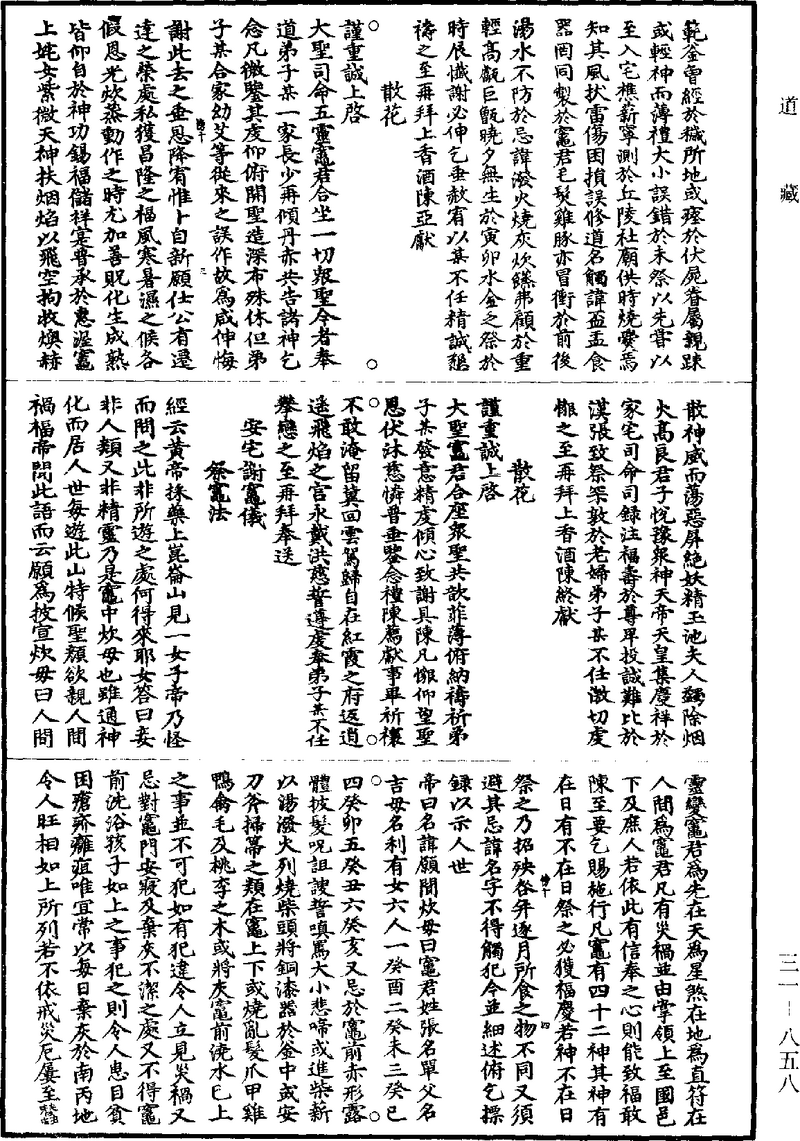 道藏
三一-八五八
範釜曾經於穢所地或瘞於伏屍眷屬親踈
或輕神而薄禮大小誤錯於未祭以先嘗以
至入宅樵薪寧測於丘陵社廟供時燒爨焉
知其風扙雷傷因損誤修道名觸諱盃盂食
器罔同製於竈君毛髮雞豚亦冒衝於前後
湯水不防於忌諱潑火燒灰炊饎弗顧於重
輕高甗巨甑曉夕無生於寅卯水金之祭於
時辰懺謝必伸乞垂赦宥以某不任精誠懇
禱之至再拜上香酒陳亞獻
散花
謹重誠上啓
大聖司命五靈竈君合坐一切衆聖今者奉
道弟子某一家長少再傾丹赤共告諸神乞
念凡微鑒其虔仰俯開聖造深布殊休但弟
子某合家幼艾等從來之誤作故爲咸伸悔
謝此去之垂恩降宥惟卜自新願仕公有遷
達之榮處私獲昌隆之福風寒暑濕之候各
假恩光炊蒸動作之時尤加善貺化生成熟
皆仰自於神功錫福儲祥寔普承於惠渥竈
上姹女紫微天神扶烟焰以飛空拘收燠赫
散神威而蕩惡屏絶妖精玉池夫人蠲除烟
火高良君子悅豫衆神天帝天皇集慶祥於
家宅司命司録注福壽於尊卑投誠難比於
漢張致祭渠敦於老婦弟子某不任激切虔
悃之至再拜上香酒陳終獻
散花
謹重誠上啓
大聖竈君合座衆聖共歆菲薄俯納禱祈弟
子某發意精虔傾心致謝具陳凡悃仰望聖
恩伏沐慈憐普垂鑒念禮陳薦獻事畢祈禳
不敢淹留冀回雲駕歸自在紅霞之府返逍
遥飛焰之宫永戴洪慈誓遵虔奉弟子某不任
攀戀之至再拜奉送
安宅謝竈儀
祭竈法
經云黄帝採藥上崑崙山見一女子帝乃怪
而問之此非所遊之處何得來耶女答曰妾
非人類又非精靈乃是竈中炊母也雖通神
化而居人世每遊此山特候聖顔欲親人間
禍福帝聞此語而云願爲披宣炊母曰人間
靈變竈君爲先在天爲星煞在地爲直符在
人間爲竈君凡有災禍並由掌領上至國邑
下及庶人若依此有信奉之心則能致福敢
陳至要乞賜施行凡竈有四十二神其神有
在日有不在日祭之必獲福慶若神不在日
祭之乃招殃咎并逐月所食之物不同又須
避其忌諱名字不得觸犯今並細述俯乞標
録以示人世
帝曰名諱願聞炊母曰竈君姓張名單父名
吉母名利有女六人一癸酉二癸未三癸巳
四癸卯五癸丑六癸亥又忌於竈前赤形露
體披髮呪詛謏誓嗔罵大小悲啼或進柴薪
以湯潑火列燒柴頭將銅漆器於釜中或安
刀斧掃箒之類在竈上下或燒亂髮爪甲雞
鴨禽毛及桃李之木或將灰竈前澆水已上
之事並不可犯如有犯違令人立見災禍又
忌對竈門安寢及棄灰不潔之處又不得竈
前洗浴孩子如上之事犯之則令人患目貧
困瘡疥癰疽唯宜常以每日棄灰於南丙地
令人旺相如上所列若不依戒災厄屢至